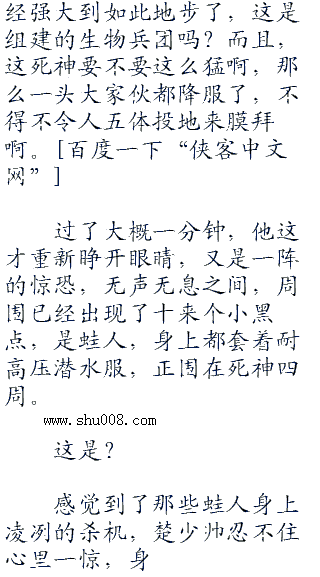 经强大到如此地步了，这是
组建的生物兵团吗？而且，
这死神要不要这么猛啊，那
么一头大家伙都降服了，不
得不令人五体投地来膜拜
啊。[百度一下“侠客中文
网”]
过了大概一分钟，他这
才重新睁开眼睛，又是一阵
的惊恐，无声无息之间，周
围已经出现了十来个小黑
点，是蛙人，身上都套着耐
高压潜水服，正围在死神四
周。
www.shu008.com
这是？
感觉到了那些蛙人身上
凌冽的杀机，楚少帅忍不住
心里一惊，身